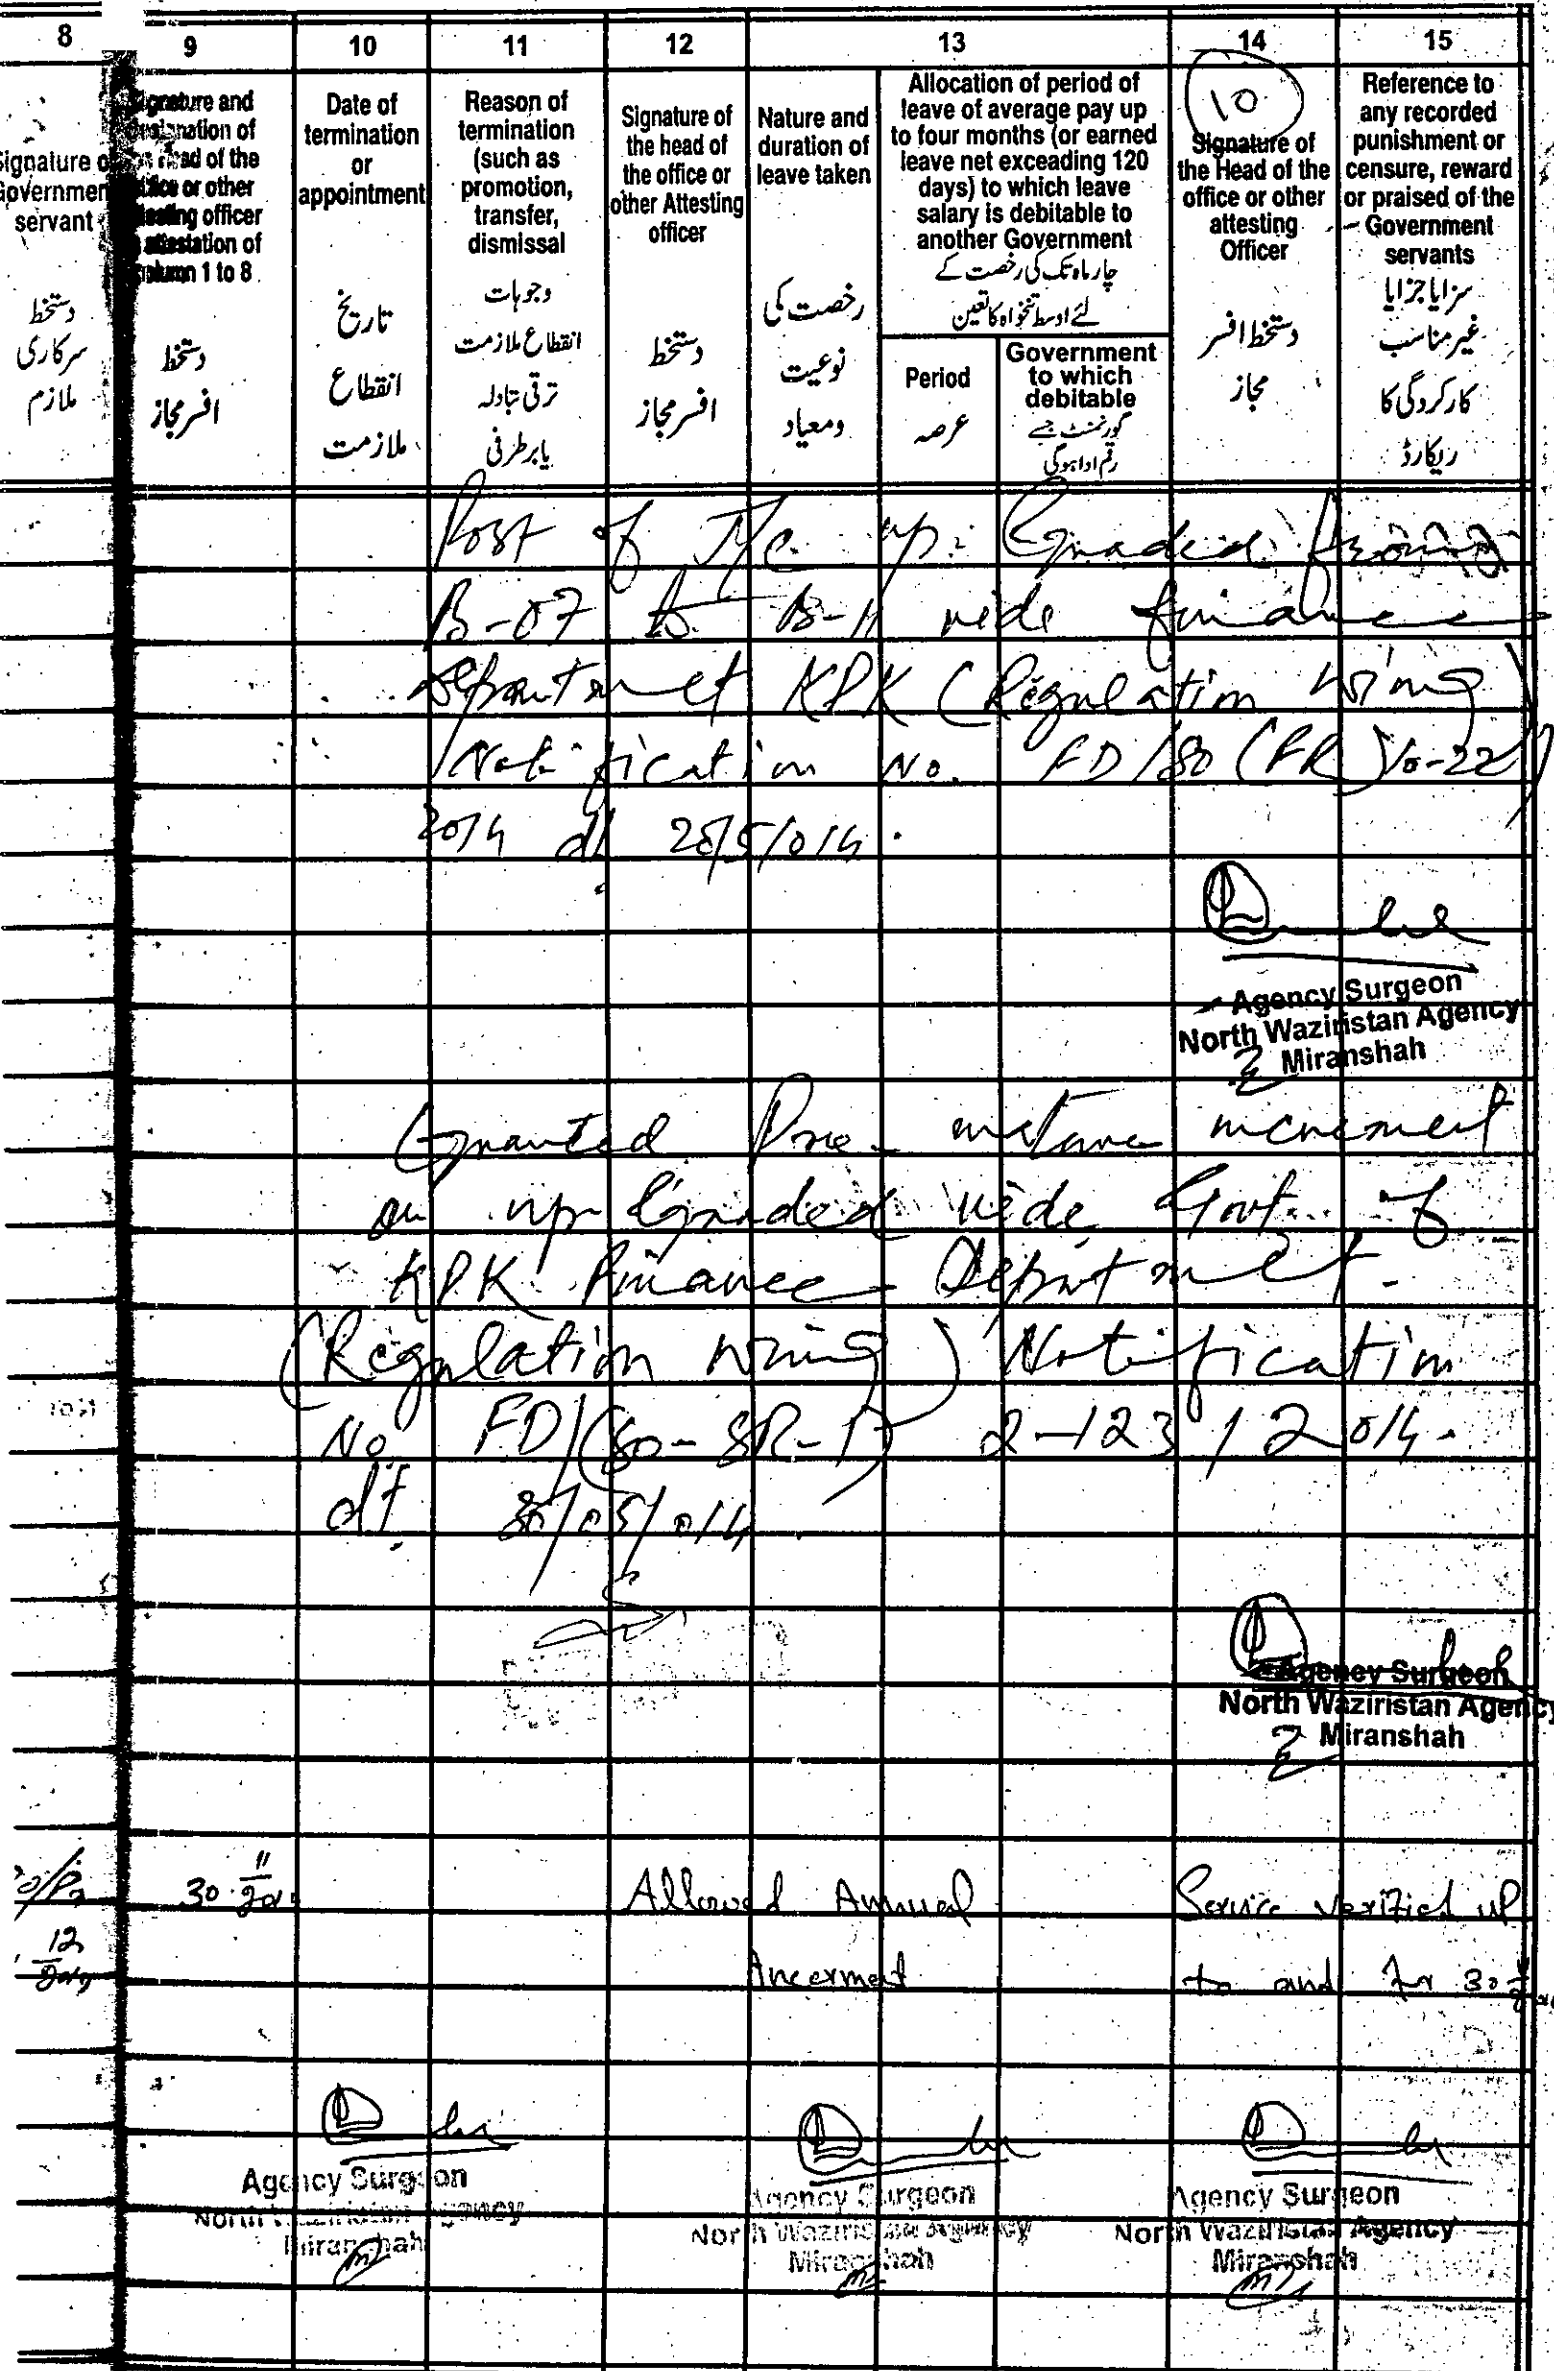 8 9 10 11 12 13 14 15
Signature of Government servant
دستخط سرکاری ملازم
Signature and designation of the head of the office or other attesting officer attestation of column 1 to 8
دستخط افسر مجاز
Date of termination or appointment
تاریخ انقطاع ملازمت
Reason of termination (such as promotion, transfer, dismissal
وجوہات انقطاع ملازمت ترقی تبادلہ یا برطرفی
Signature of the head of the office or other Attesting officer
دستخط افسر مجاز
Nature and duration of leave taken
رخصت کی نوعیت ومعیاد
Allocation of period of leave of average pay up to four months (or earned leave net exceading 120 days) to which leave salary is debitable to another Government
چار ماہ تک کی رخصت کے لئے اوسط تنخواہ کا تعین
Period
عرصہ
Government to which debitable
گورنمنٹ جسے رقم ادا ہوگی
10
Signature of the Head of the office or other attesting Officer
دستخط افسر مجاز
Reference to any recorded punishment or censure, reward or praised of the Government servants
سزا یا جزا یا غیر مناسب کارکردگی کا ریکارڈ
Post of up-Graded from
B-07 to B-11 vide finance
Department KPK (Regulation wing)
Notification No. FD/SO (FR) 10-22/
2014 dt 20/5/014.
Agency Surgeon
North Waziristan Agency
Miranshah
Granted Pre-mature increment
on up-Graded vide Govt. of
KPK Finance Department.
(Regulation wing) Notification
No FD/(SO-SR-1) 2-123/2014.
dt 30/05/014
Agency Surgeon
North Waziristan Agency
Miranshah
30 11 Allowed Annual Service verified up
12 Increment to and for 30
Agency Surgeon Agency Surgeon Agency Surgeon
North Waziristan Agency North Waziristan Agency North Waziristan Agency
Miranshah Miranshah Miranshah